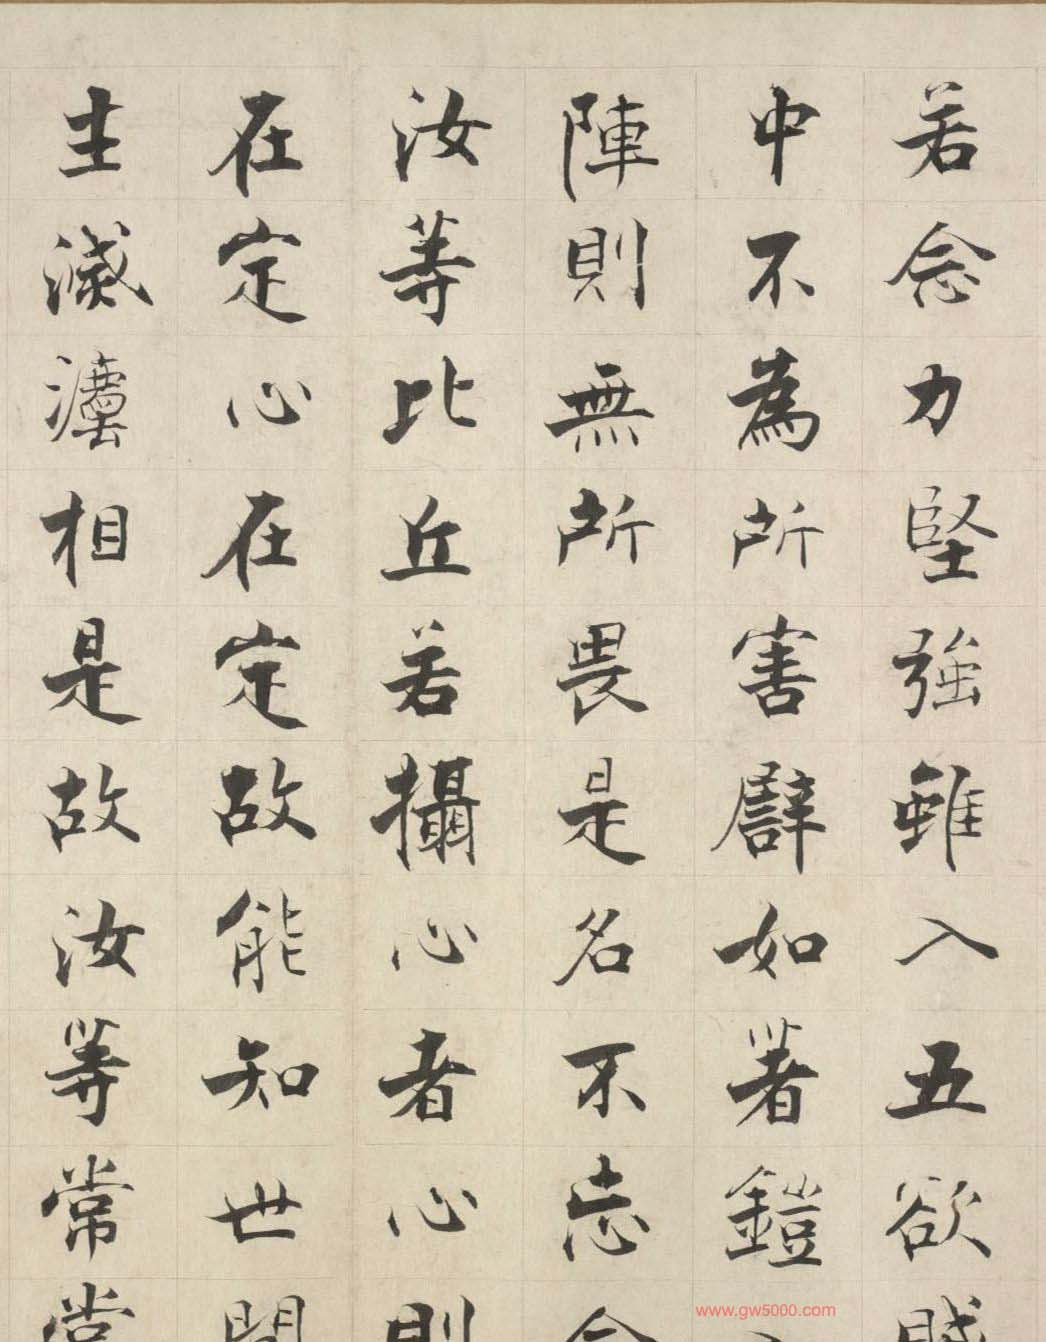 若念力堅強雖入五欲賊
中不為所害譬如著鎧入
陣則無所畏是名不忘念
汝等比丘若攝心者心則
在定心在定故能知世間
生滅灋相是故汝等常當
www.gw5000.com